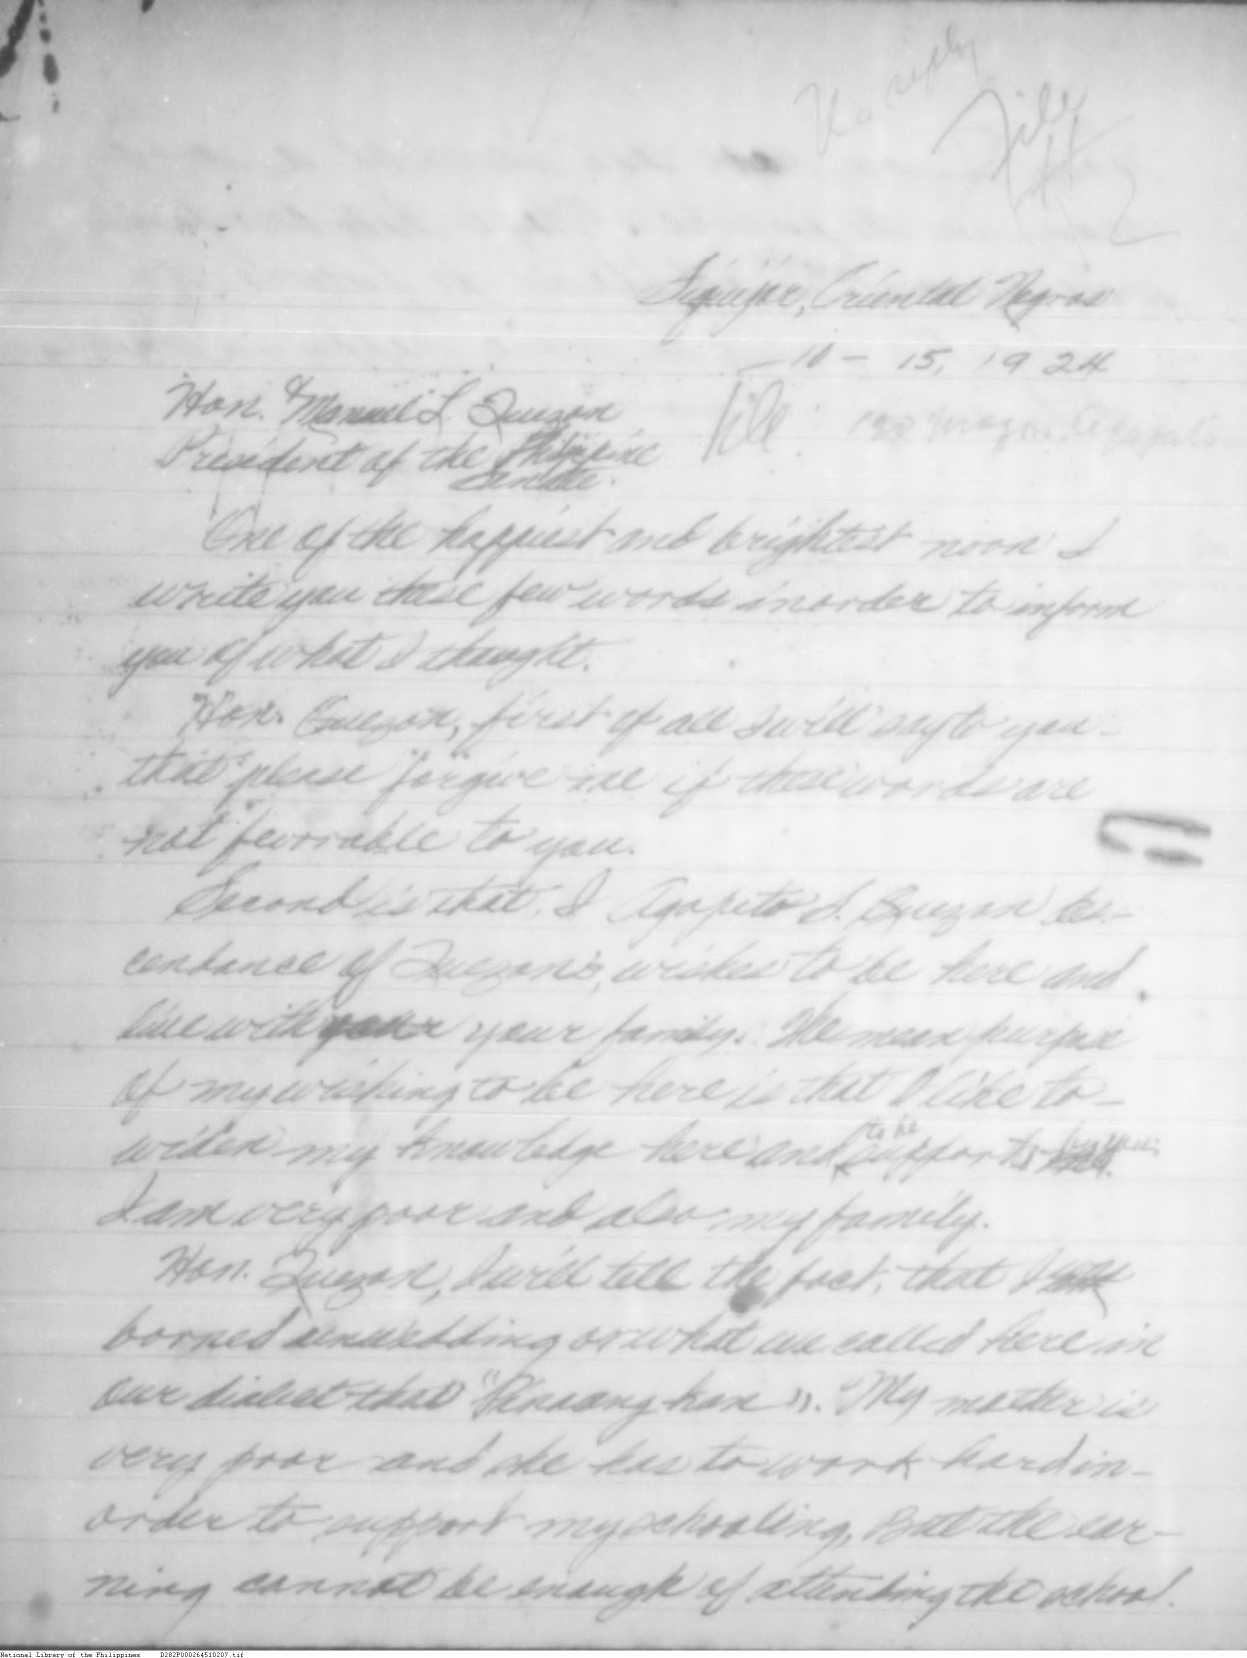 No reply
File
Siquijor, Oriental Negros
10 - 15, 1924
Hon. Manuel L. Quezon
File
President of the Philippine
Senate.
One of the happiest and brightest noon I
write you these few words inorder to inform
you of what I thought.
Hon. Quezon, first of all I will say to you -
that please forgive me if these words are
not favorable to you.
Second is that. I Agapito S. Quezon des-
cendance of Quezon's, wishes to be here and
live with your family. The mean purpose
of my wishing to be here is that I like to -
widen my knowledge here and to be support by you
I am very poor and also my family.
Hon. Quezon, I will tell the fact, that I was
borned unwedding or what we called here in
our dialect that " ". My mother is
very poor and she has to work hard in -
order to support my schooling, But the ear -
ning cannot be enough of attending the school.
National Library of the Philippines D282P000264510207.tif